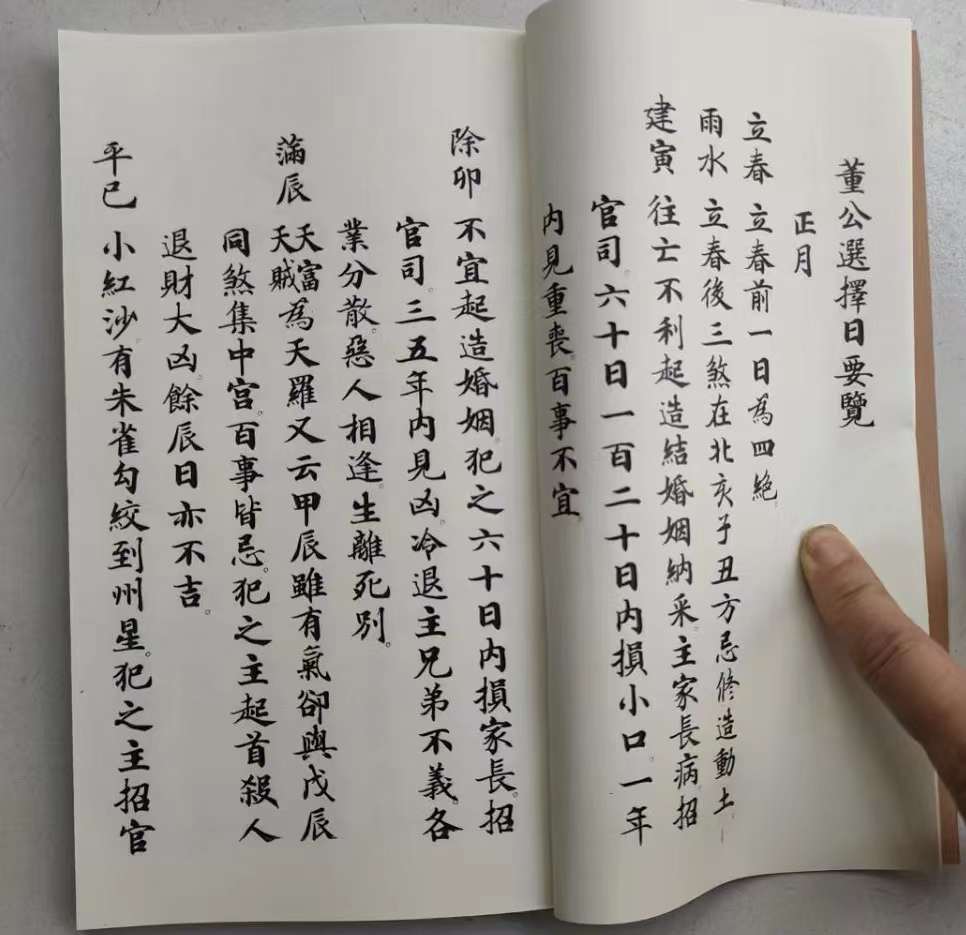 董公選擇日要覽
正月
立春 立春前一日為四絕
雨水 立春後三煞在北亥子丑方忌修造動土
建寅 往亡不利起造結婚姻納采。主家長病招
官司。六十日一百二十日內損小口。一年
內見重喪。百事不宜
除卯 不宜起造婚姻。犯之六十日內損家長。招
官司。三五年內見凶。冷退主兄弟不義。各
業分散。惡人相逢。生離死別。
滿辰 天富天賊為天羅又云甲辰雖有氣卻與戊辰
同煞集中宮。百事皆忌。犯之主起首殺人
退財大凶。餘辰日亦不吉。
平巳 小紅沙。有朱雀勾絞到州星。犯之主招官